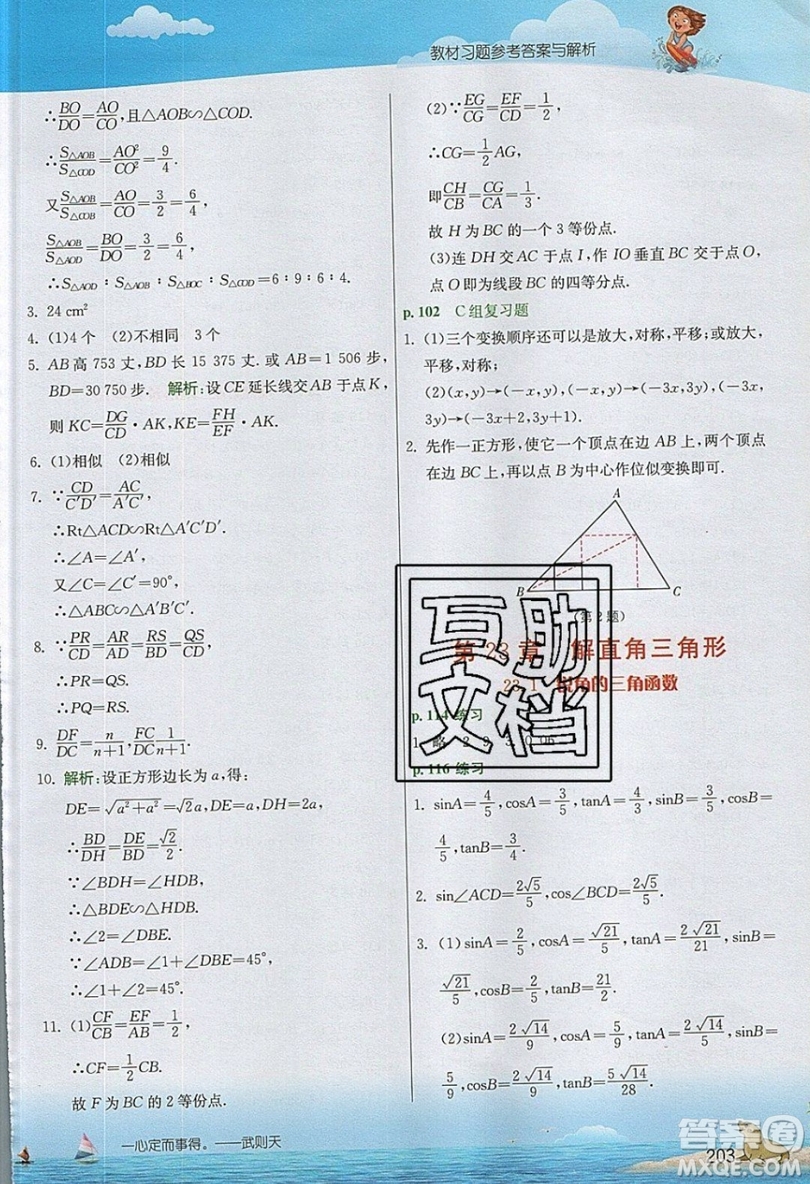 教材习题参考答案与解析
∴BO/DO=AO/CO,且△AOB∽△COD.
∴S△AOB/S△COD=AO²/CO²=9/4.
又S△AOB/S△COB=AO/CO=3/2=6/4,
S△AOB/S△AOD=BO/DO=3/2=6/4,
∴S△AOB∶S△AOD∶S△BOC∶S△COD=6∶9∶6∶4.
3. 24 cm²
4. (1)4个 (2)不相同 3个
5. AB高753丈,BD长15 375丈.或AB=1 506步,
BD=30 750步. 解析:设CE延长线交AB于点K,
则KC=DG/CD·AK,KE=FH/EF·AK.
6. (1)相似 (2)相似
7. ∵CD/C′D′=AC/A′C′,
∴Rt△ACD∽Rt△A′C′D′.
∴∠A=∠A′.
又∠C=∠C′=90°,
∴△ABC∽△A′B′C′.
8. ∵PR/CD=AR/AD=RS/BD=QS/CD,
∴PR=QS.
∴PQ=RS.
9. DF/DC=n/n+1,FC/DC=1/n+1.
10. 解析:设正方形边长为a,得:
DE=√a²+a²=√2a,DE=DA,DH=2a,
∴BD/DH=DE/BD=√2/2.
∵∠BDH=∠HDB,
∴△BDE∽△HDB.
∴∠2=∠DBE.
∵∠ADB=∠1+∠DBE=45°,
∴∠1+∠2=45°.
11. (1)CF/CB=EF/AB=1/2,
∴CF=1/2CB.
故F为BC的2等份点.
(2)∵EG/CG=EF/CD=1/2,
∴CG=1/2AG,
即CH/CB=CG/CA=1/3.
故H为BC的一个3等份点.
(3)连DH交AC于点I,作IO垂直BC交于点O,
点O即为线段BC的四等分点.
p.102 C组复习题
1. (1)三个变换顺序还可以是放大,对称,平移;或放大,
平移,对称;
(2)(x,y)→(-x,y)→(-3x,3y),(-3x,
3y)→(-3x+2,3y+1).
2. 先作一正方形,使它一个顶点在边AB上,两个顶点
在边BC上,再以点B为中心作位似变换即可.
A
B
C
(第2题)
第23章 解直角三角形
23.1 锐角的三角函数
p.114 练习
1. 略 2.
p.116 练习
1. sinA=4/5,cosA=3/5,tanA=4/3,sinB=3/5,cosB=
4/5,tanB=3/4.
2. sin∠ACD=2√5/5,cos∠BCD=2√5/5.
3. (1)sinA=2/5,cosA=√21/5,tanA=2√21/21,sinB=
√21/5,cosB=2/5,tanB=√21/2.
(2)sinA=2√14/9,cosA=5/9,tanA=2√14/5,sinB=
5/9,cosB=2√14/9,tanB=5√14/28.
互助
文档
一心定而事得。——武则天
203
答案圈
MXQE.COM